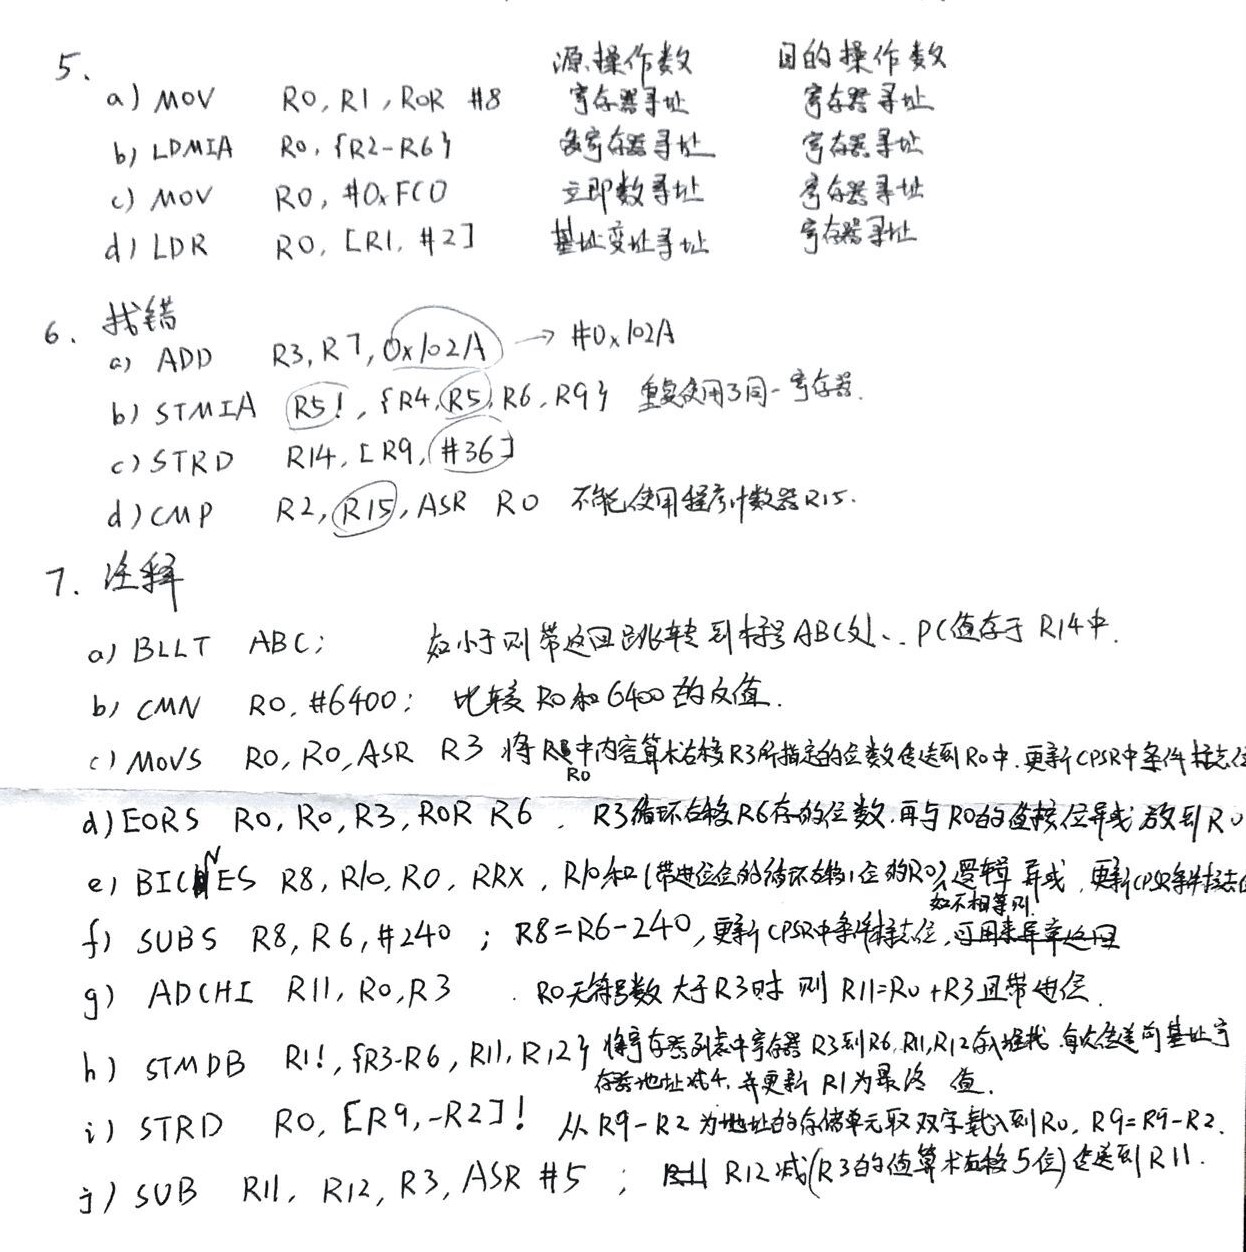 5、 源操作数 目的操作数
a) MOV R0, R1, ROR #8 寄存器寻址 寄存器寻址
b) LDMIA R0, {R2-R6} 多寄存器寻址 寄存器寻址
c) MOV R0, #0xFC0 立即数寻址 寄存器寻址
d) LDR R0, [R1, #2] 基址变址寻址 寄存器寻址
6、找错
a) ADD R3, R7, 0x102A → #0x102A
b) STMIA R5!, {R4, R5, R6, R9} 重复使用了同一寄存器.
c) STRD R14, [R9, #36]
d) CMP R2, R15, ASR R0 不能使用程序计数器R15.
7. 注释
a) BLLT ABC; 若小于则带返回跳转到标号ABC处、. PC值存于R14中.
b) CMN R0, #6400; 比较R0和6400的反值.
c) MOVS R0, R0, ASR R3 将R0中内容算术右移R3所指定的位数传送到R0中.更新CPSR中条件标志位
d) EORS R0, R0, R3, ROR R6 . R3循环右移R6存的位数.再与R0的值按位异或放到R0
e) BICNES R8, R10, R0, RRX , R10和(带进位位的循环右移1位的R0)逻辑异或, 更新CPSR条件标志位
如不相等则.
f) SUBS R8, R6, #240 ; R8=R6-240, 更新CPSR中条件标志位, 可用来异常返回
g) ADCHI R11, R0, R3 . R0无符号数大于R3时 则R11=R0+R3且带进位.
h) STMDB R1!, {R3-R6, R11, R12} 将寄存器列表中寄存器R3到R6, R11, R12存入堆栈.每次传送前基址寄
存器地址减4, 并更新R1为最终值.
i) STRD R0, [R9, -R2]! 从R9-R2为地址的存储单元取双字载入到R0, R9=R9-R2.
j) SUB R11, R12, R3, ASR #5 ; R12减(R3的值算术右移5位)传送到R11.